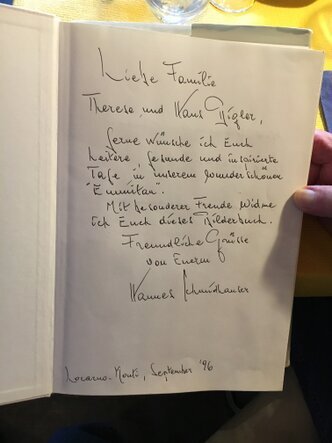 Liebe Familie
Therese und Hans Bigler,
gerne wünsche ich Euch
heitere, gesunde und inspirierte
Tage in unserem wunderschönen
"Eumitan".
Mit besonderer Freude widme
ich Euch dieses Bilderbuch.
Freundliche Grüsse
von Euerm
Hannes Schmidhauser
Locarno-Monti, September '96